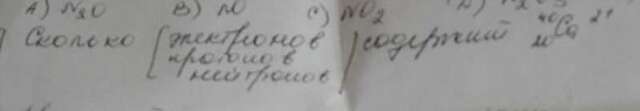 A) N₂O B) NO C) NO₂
Сколько [электронов протонов нейтронов] содержит ⁴⁰₂₀Ca²⁺